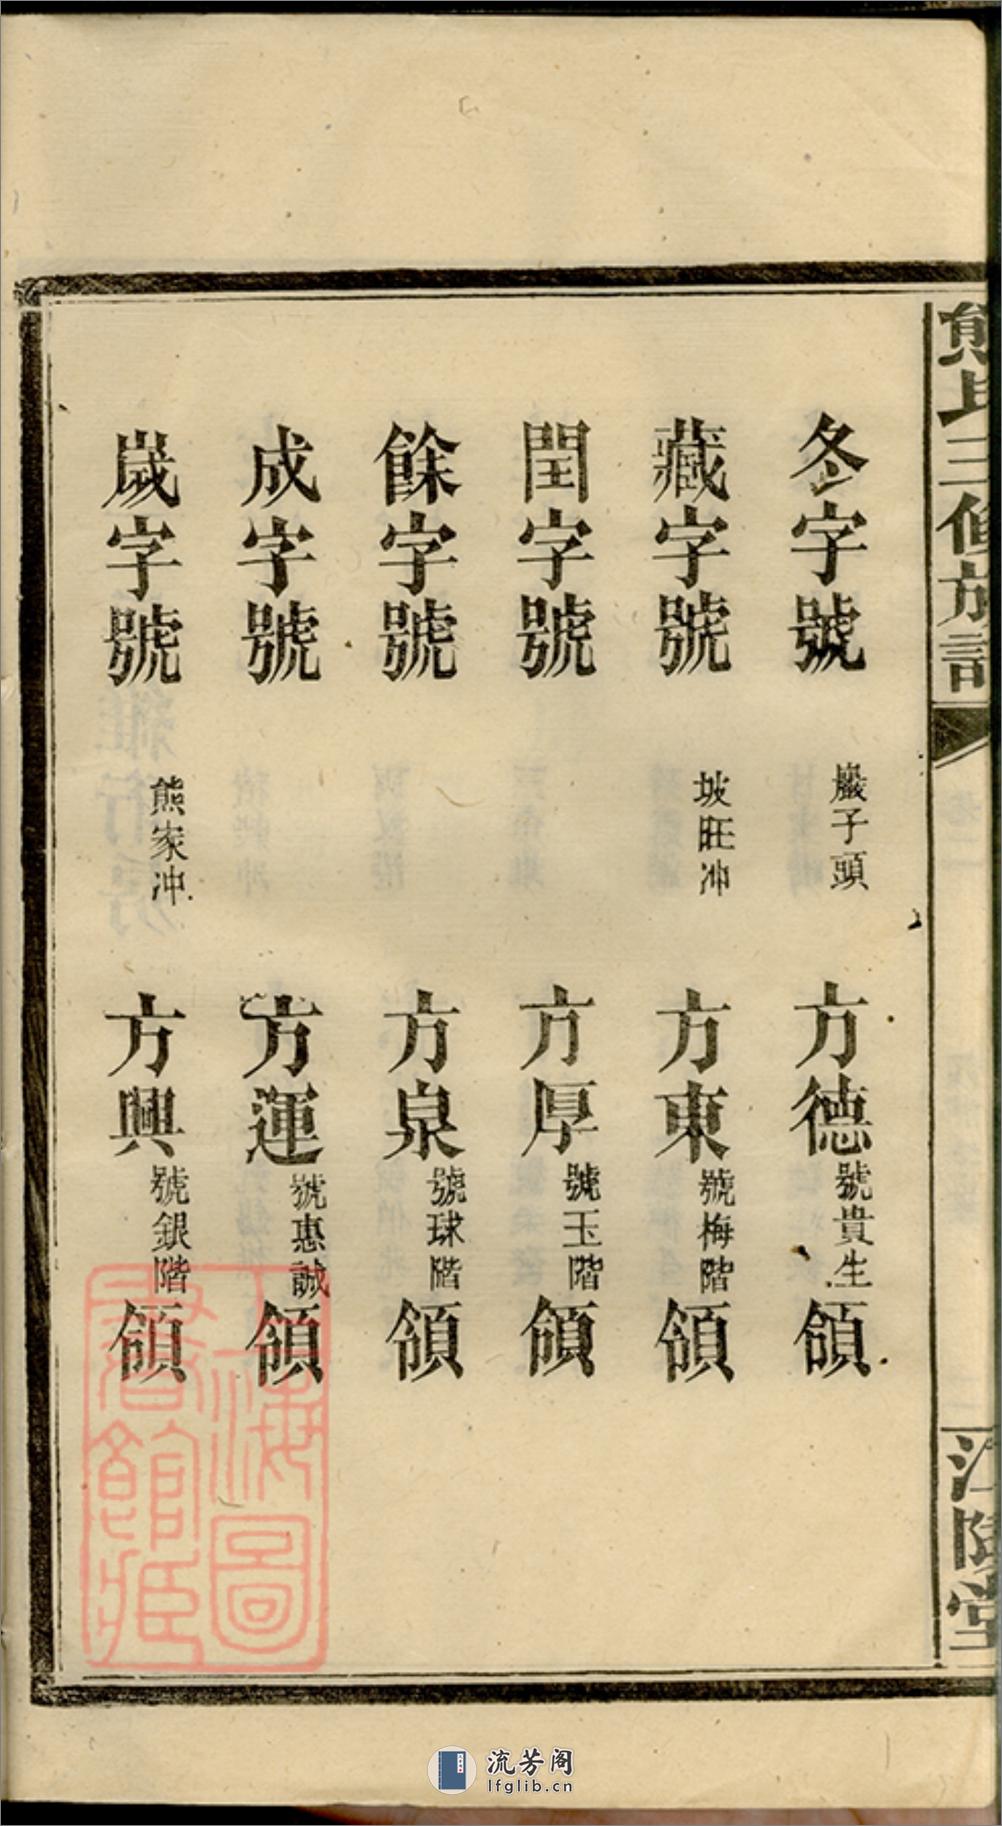 熊氏三修族譜
江陵堂
冬字號 巖子頭 方德號貴生領
藏字號 坡旺冲 方東號梅階領
閏字號 方厚號玉階領
餘字號 方泉號球階領
成字號 方運號惠誠領
歲字號 熊家冲 方興號銀階領
上海圖書館藏
流芳阁
lfglib.cn